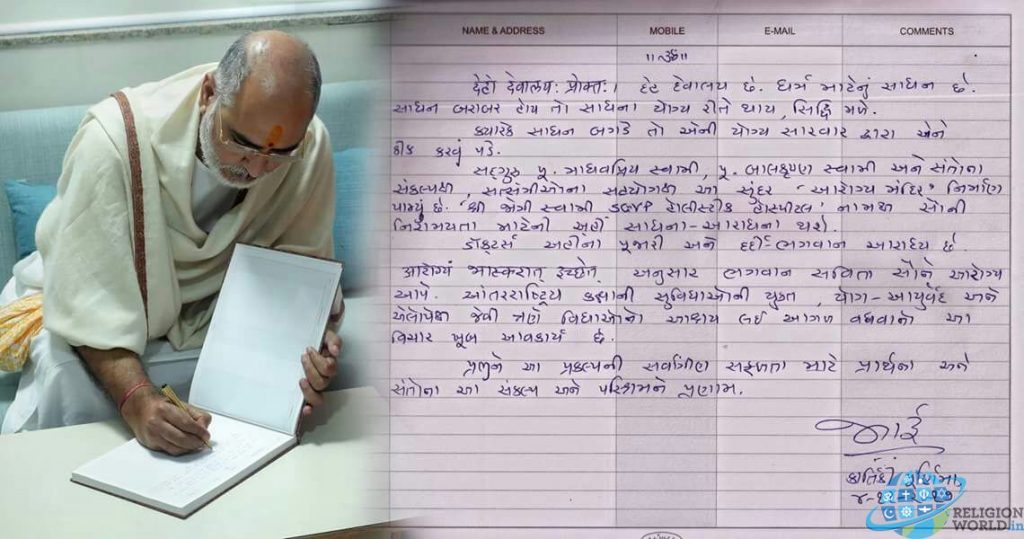 NAME & ADDRESS MOBILE E-MAIL COMMENTS
॥ ૐ ॥
देहो देवालयः प्रोक्तः। દેહ દેવાલય છે. ધર્મ માટેનું સાધન છે.
સાધન બરાબર હોય તો સાધના યોગ્ય રીતે થાય, સિદ્ધિ મળે.
ક્યારેક સાધન બગડે તો એની યોગ્ય સારવાર દ્વારા એને
ઠીક કરવું પડે.
સદ્ગુરુ પૂ. માધવપ્રિય સ્વામી, પૂ. બાલકૃષ્ણ સ્વામી અને સંતોના
સંકલ્પથી, સત્સંગીઓના સહયોગથી આ સુંદર 'આરોગ્ય મંદિર' નિર્માણ
પામ્યું છે. 'શ્રી જોગી સ્વામી SGVP હોલીસ્ટીક હોસ્પીટલ' નામથી સૌની
નિરામયતા માટેની અહીં સાધના-આરાધના થશે.
ડૉક્ટર્સ અહીંના પૂજારી અને દર્દી ભગવાન આરાધ્ય છે.
आरोग्यं भास्करात् इच्छेत् અનુસાર ભગવાન સવિતા સૌને આરોગ્ય
આપે. આંતરરાષ્ટ્રિય કક્ષાની સુવિધાઓની યુક્ત, યોગ-આયુર્વેદ અને
એલોપેથી જેવી ત્રણે વિદ્યાઓનો આશ્રય લઈ આગળ વધવાનો આ
વિચાર ખૂબ આવકાર્ય છે.
પ્રભુને આ પ્રકલ્પની સર્વાંગીણ સફળતા માટે પ્રાર્થના અને
સંતોના આ સંકલ્પ અને પરિશ્રમને પ્રણામ.
ભાઈ
કાર્તિકી પૂર્ણિમા,
RELIGION
WORLD.in